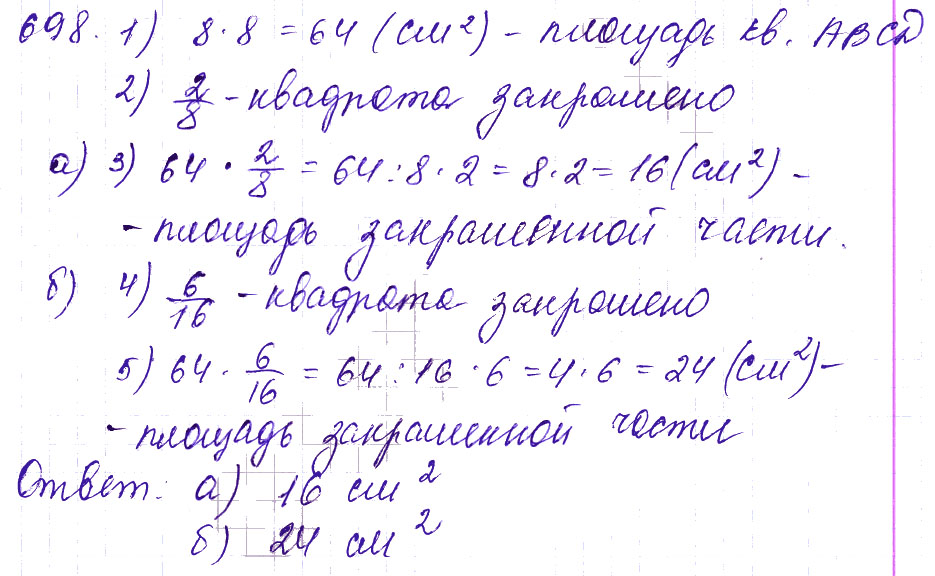 698. 1) 8 · 8 = 64 (см²) - площадь кв. ABCD
2) 2/8 - квадрата закрашено
а) 3) 64 · 2/8 = 64 : 8 · 2 = 8 · 2 = 16 (см²) -
- площадь закрашенной части.
б) 4) 6/16 - квадрата закрашено
5) 64 · 6/16 = 64 : 16 · 6 = 4 · 6 = 24 (см²) -
- площадь закрашенной части
Ответ: а) 16 см²
б) 24 см²